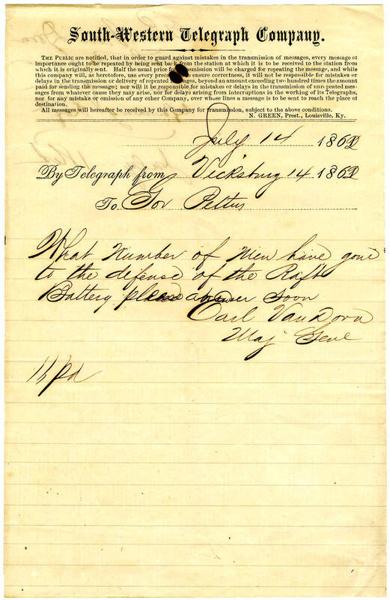 South-Western Telegraph Company.
THE PUBLIC are notified, that in order to guard against mistakes in the transmission of messages, every message of
importance ought to be repeated by being sent back from the station at which it is to be received to the station from
which it is originally sent. Half the usual price for transmission will be charged for repeating the message, and while
this company will, as heretofore, use every precaution to ensure correctness, it will not be responsible for mistakes or
delays in the transmission or delivery of repeated messages, beyond an amount exceeding two hundred times the amount
paid for sending the message; nor will it be responsible for mistakes or delays in the transmission of unrepeated mes-
sages from whatever cause they may arise, nor for delays arising from interruptions in the working of its Telegraphs,
nor for any mistake or omission of any other Company, over whose lines a message is to be sent to reach the place of
destination.
All messages will hereafter be received by this Company for Transmission, subject to the above conditions.
N. GREEN, Prest., Louisville, Ky.
July 14 1862
By Telegraph from Vicksburg 14 1862
To Gov Pettus
What Number of Men have gone
to the defense of the Raft
Battery please answer soon
Earl Van Dorn
Maj Genl
pd